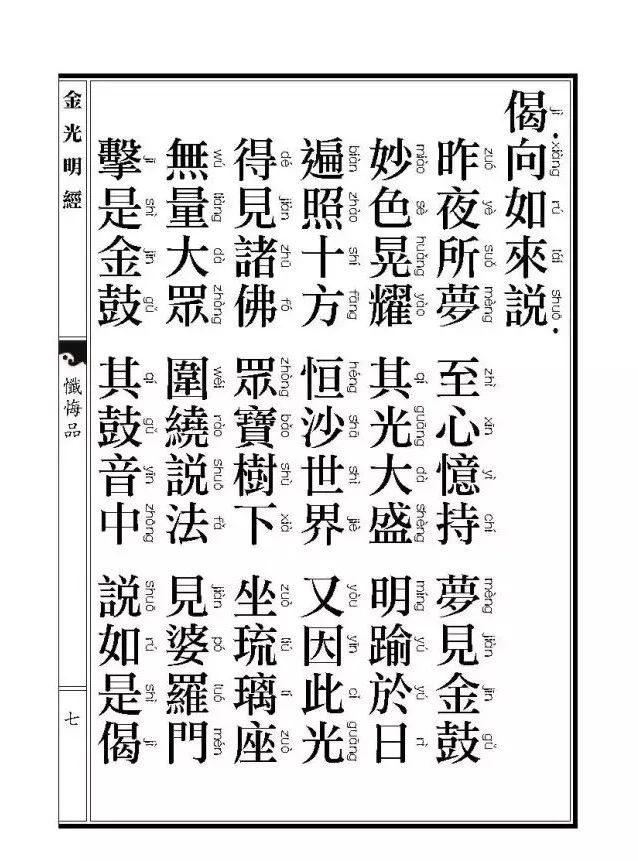 偈。向如來說。
昨夜所夢 至心憶持 夢見金鼓
妙色晃耀 其光大盛 明踰於日
遍照十方 恒沙世界 又因此光
得見諸佛 眾寶樹下 坐琉璃座
無量大眾 圍繞說法 見婆羅門
擊是金鼓 其鼓音中 說如是偈
金光明經 懺悔品 七
jì xiàng rú lái shuō
zuó yè suǒ mèng zhì xīn yì chí mèng jiàn jīn gǔ
miào sè huǎng yào qí guāng dà shèng míng yú yú rì
biàn zhào shí fāng héng shā shì jiè yòu yīn cǐ guāng
dé jiàn zhū fó zhòng bǎo shù xià zuò liú lí zuò
wú liàng dà zhòng wéi rào shuō fǎ jiàn pó luó mén
jī shì jīn gǔ qí gǔ yīn zhōng shuō rú shì jì